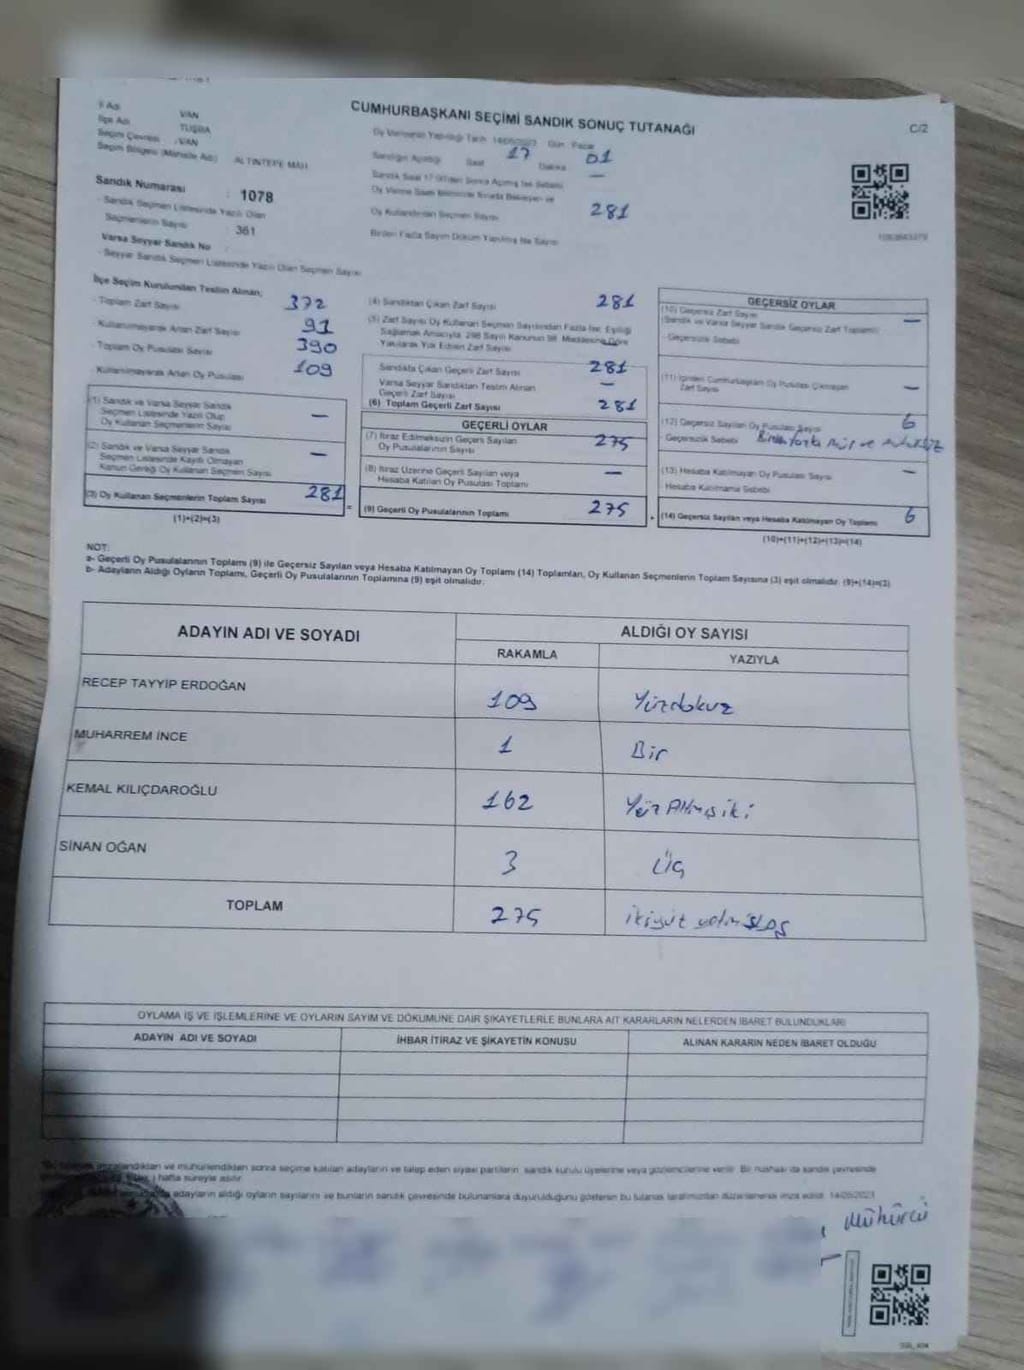 CUMHURBAŞKANI SEÇİMİ SANDIK SONUÇ TUTANAĞI
C/2
İl Adı VAN
İlçe Adı TUŞBA
Seçim Çevresi : VAN
Seçim Bölgesi (Mahalle Adı) ALTINTEPE MAH.
Sandık Numarası : 1078
- Sandık Seçmen Listesinde Yazılı Olan
Seçmenlerin Sayısı : 361
Varsa Seyyar Sandık No :
- Seyyar Sandık Seçmen Listesinde Yazılı Olan Seçmen Sayısı
Oy Vermenin Yapıldığı Tarih 14/05/2023 Gün Pazar
Sandığın Açıldığı Saat 17 Dakika 01
Sandık Saat 17:00'den Sonra Açılmış İse Sebebi —
Oy Kullandırılan Seçmen Sayısı 281
Birden Fazla Sayım Döküm Yapılmış İse Sayısı
İlçe Seçim Kurulundan Teslim Alınan;
- Toplam Zarf Sayısı 372
- Kullanılmayarak Artan Zarf Sayısı 91
- Toplam Oy Pusulası Sayısı 390
- Kullanılmayarak Artan Oy Pusulası 109
(1) Sandık ve Varsa Seyyar Sandık
Seçmen Listesinde Yazılı Olup
Oy Kullanan Seçmenlerin Sayısı —
(2) Sandık ve Varsa Seyyar Sandık
Seçmen Listesinde Kayıtlı Olmayan
Kanun Gereği Oy Kullanan Seçmen Sayısı —
(3) Oy Kullanan Seçmenlerin Toplam Sayısı 281
(1)+(2)=(3)
(4) Sandıktan Çıkan Zarf Sayısı 281
(5) Zarf Sayısı Oy Kullanan Seçmen Sayısından Fazla İse, Eşitliği
Sağlamak Amacıyla 298 Sayılı Kanunun 98. Maddesine Göre
Yakılarak Yok Edilen Zarf Sayısı
Sandıkta Çıkan Geçerli Zarf Sayısı 281
Varsa Seyyar Sandıktan Teslim Alınan
Geçerli Zarf Sayısı —
(6) Toplam Geçerli Zarf Sayısı 281
GEÇERLİ OYLAR
(7) İtiraz Edilmeksizin Geçerli Sayılan
Oy Pusulalarının Sayısı 275
(8) İtiraz Üzerine Geçerli Sayılan veya
Hesaba Katılan Oy Pusulası Toplamı —
(9) Geçerli Oy Pusulalarının Toplamı 275
GEÇERSİZ OYLAR
(10) Geçersiz Zarf Sayısı —
(Sandık ve Varsa Seyyar Sandık Geçersiz Zarf Toplamı)
- Geçersizlik Sebebi
(11) İçinden Cumhurbaşkanı Oy Pusulası Çıkmayan
Zarf Sayısı —
(12) Geçersiz Sayılan Oy Pusulası Sayısı 6
- Geçersizlik Sebebi
(13) Hesaba Katılmayan Oy Pusulası Sayısı —
Hesaba Katılmama Sebebi
(14) Geçersiz Sayılan veya Hesaba Katılmayan Oy Toplamı 6
(10)+(11)+(12)+(13)=(14)
NOT:
a- Geçerli Oy Pusulalarının Toplamı (9) ile Geçersiz Sayılan veya Hesaba Katılmayan Oy Toplamı (14) Toplamları, Oy Kullanan Seçmenlerin Toplam Sayısına (3) eşit olmalıdır. (9)+(14)=(3)
b- Adayların Aldığı Oyların Toplamı, Geçerli Oy Pusulalarının Toplamına (9) eşit olmalıdır.
ADAYIN ADI VE SOYADI ALDIĞI OY SAYISI
RAKAMLA YAZIYLA
RECEP TAYYİP ERDOĞAN 109 Yüzdokuz
MUHARREM İNCE 1 Bir
KEMAL KILIÇDAROĞLU 162 Yüz Altmışiki
SİNAN OĞAN 3 Üç
TOPLAM 275
OYLAMA İŞ VE İŞLEMLERİNE VE OYLARIN SAYIM VE DÖKÜMÜNE DAİR ŞİKAYETLERLE BUNLARA AİT KARARLARIN NELERDEN İBARET BULUNDUKLARI
ADAYIN ADI VE SOYADI İHBAR İTİRAZ VE ŞİKAYETİN KONUSU ALINAN KARARIN NEDEN İBARET OLDUĞU
imzalandıktan ve mühürlendikten sonra seçime katılan adayların ve talep eden siyasi partilerin sandık kurulu üyelerine veya gözlemcilerine verilir. Bir nüshası da sandık çevresinde
hafta süreyle asılır.
adayların aldığı oyların sayılarını ve bunların sandık çevresinde bulunanlara duyurulduğunu gösteren bu tutanak tarafımızdan düzenlenerek imza edildi. 14/05/2023
mühürcü